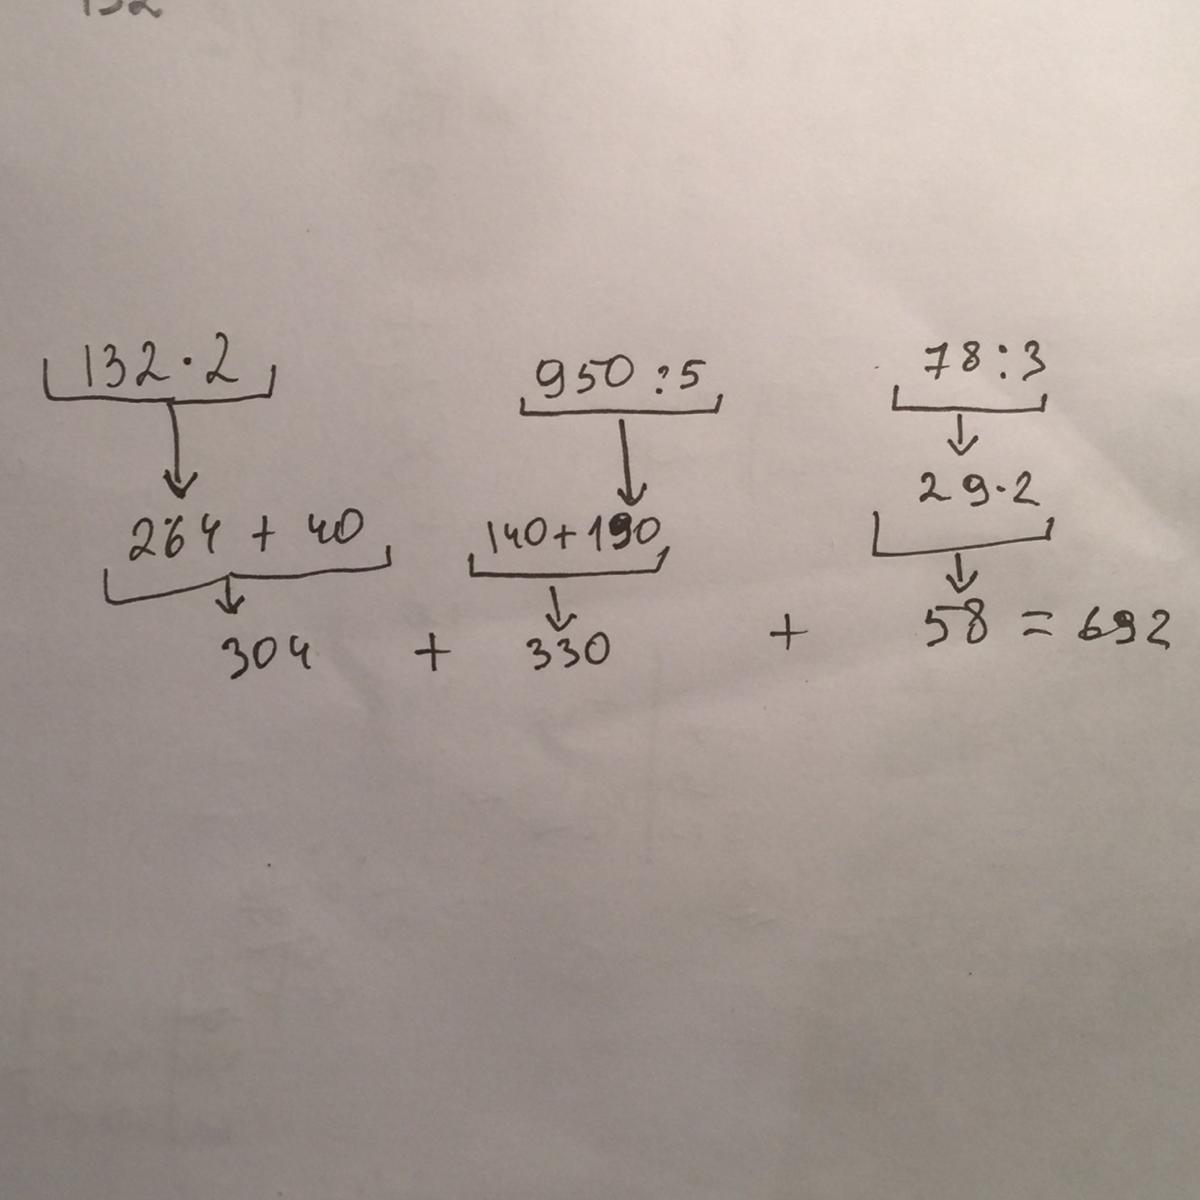 132
132 · 2 950 : 5 78 : 3
264 + 40 140 + 190 29 · 2
304 + 330 + 58 = 692